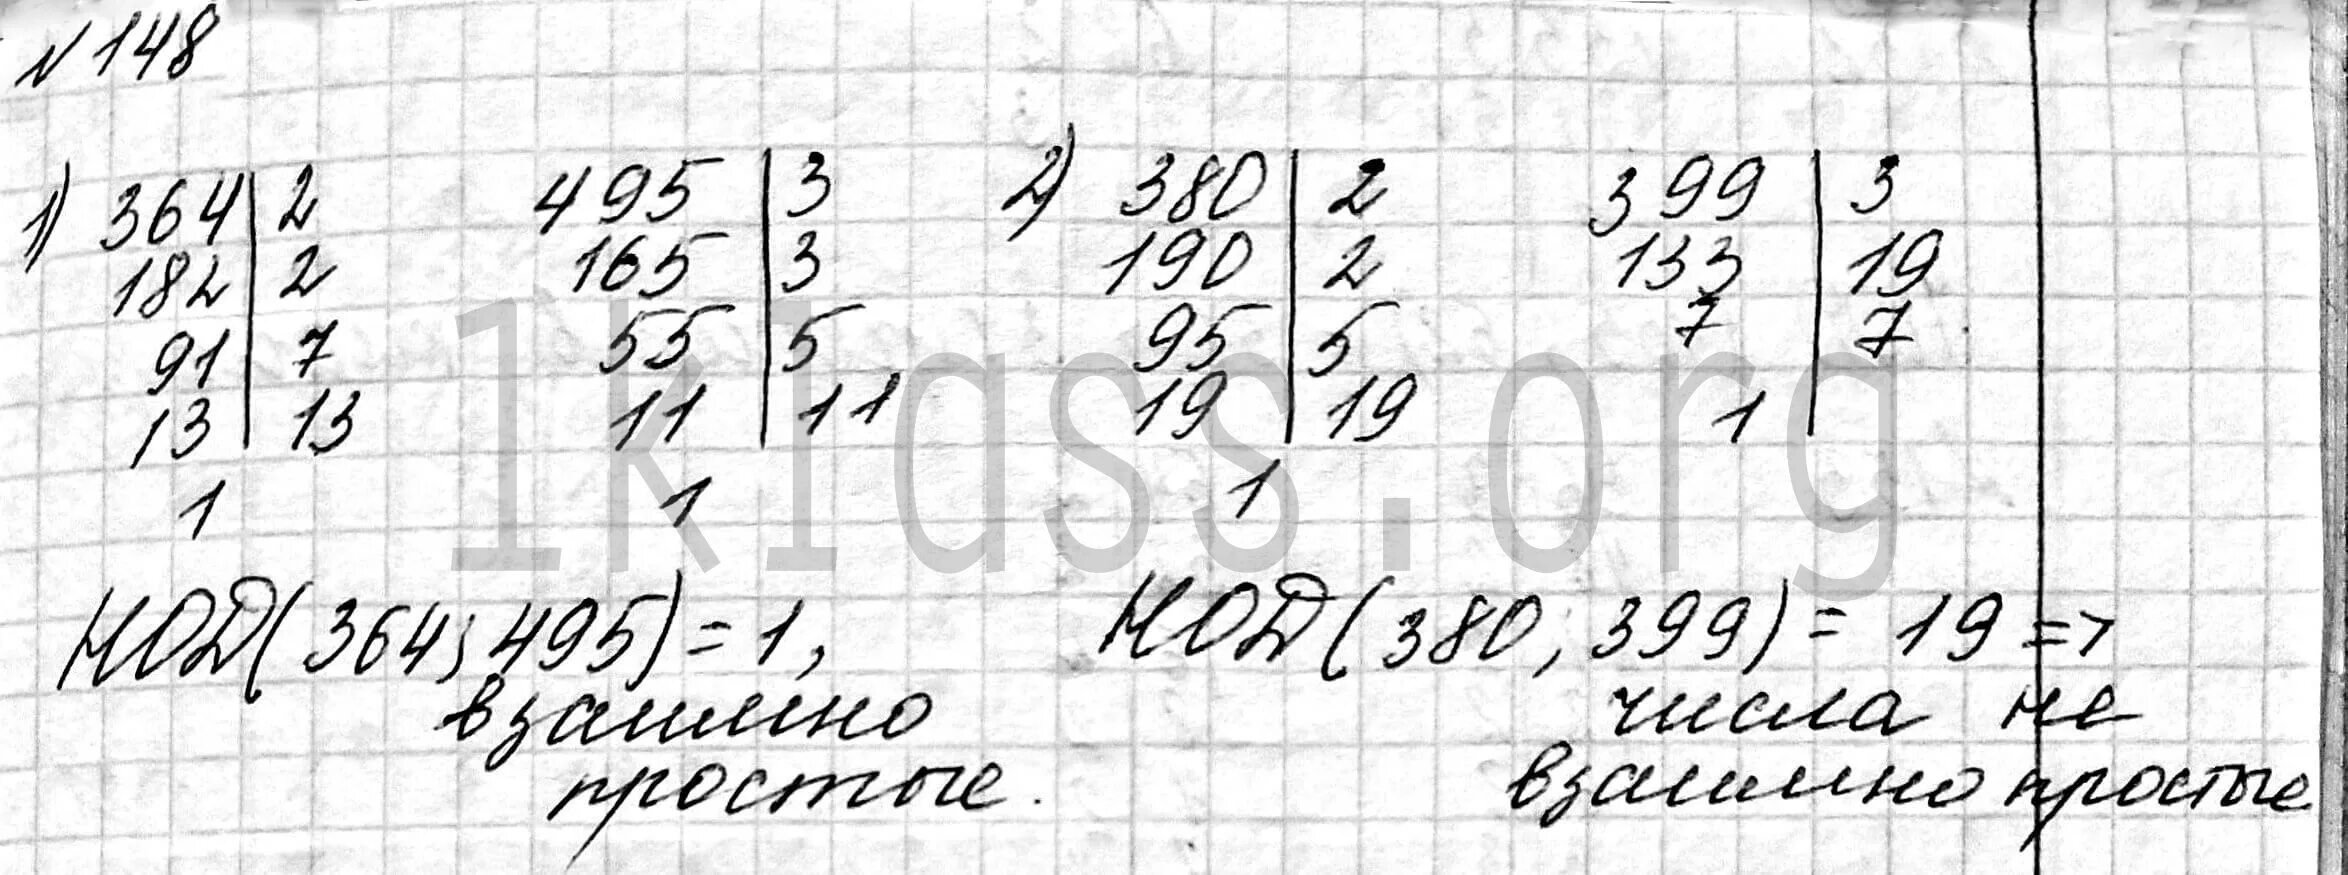 №148
1) 364 | 2 495 | 3 2) 380 | 2 399 | 3
182 | 2 165 | 3 190 | 2 133 | 19
91 | 7 55 | 5 95 | 5 7 | 7
13 | 13 11 | 11 19 | 19 1
1 1 1
1klass.org
НОД(364; 495) = 1, НОД(380; 399) = 19 =>
взаимно числа не
простые. взаимно простые